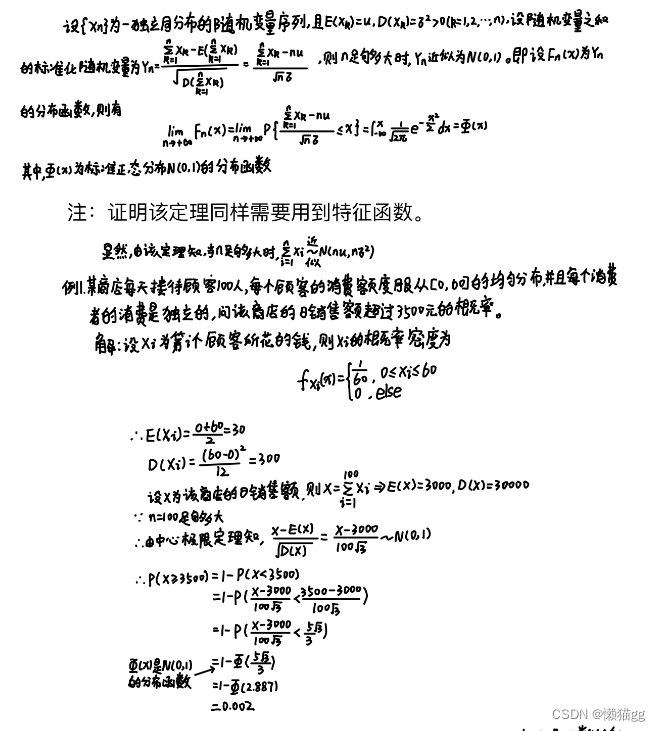 设{Xn}为一独立同分布的随机变量序列,且E(XK)=u,D(XK)=δ²>0(K=1,2,…,n),设随机变量之和
的标准化随机变量为Yn=(∑_{K=1}^{n}XK-E(∑_{K=1}^{n}XK))/√(D(∑_{K=1}^{n}XK))=(∑_{K=1}^{n}XK-nu)/(√n δ),则n足够大时,Yn近似为N(0,1)。即设Fn(x)为Yn
的分布函数,则有
lim_{n→+∞}Fn(x)=lim_{n→+∞}P{(∑_{K=1}^{n}XK-nu)/(√n δ)≤x}=∫_{-∞}^{x}1/√(2π) e^{-x²/2}dx=Φ(x)
其中,Φ(x)为标准正态分布N(0,1)的分布函数
注：证明该定理同样需要用到特征函数。
显然,由该定理知,当n足够大时,∑_{i=1}^{n}Xi 近似~ N(nu,nδ²)
例1.某商店每天接待顾客100人,每个顾客的消费额度服从[0,60]的均匀分布,并且每个消费
者的消费是独立的,问该商店的日销售额超过3500元的概率。
解:设Xi为第i个顾客所花的钱,则Xi的概率密度为
f_{Xi}(x)={1/60 , 0≤xi≤60
0 , else
∴E(Xi)=(0+60)/2=30
D(Xi)=(60-0)²/12=300
设X为该商店的日销售额,则X=∑_{i=1}^{100}Xi⇒E(X)=3000,D(X)=30000
∵n=100足够大
∴由中心极限定理知, (X-E(X))/√D(X)=(X-3000)/(100√3)~N(0,1)
∴P(X≥3500)=1-P(X<3500)
=1-P((X-3000)/(100√3)<(3500-3000)/(100√3))
=1-P((X-3000)/(100√3)<5√3/3)
Φ(x)是N(0,1)
的分布函数
=1-Φ(5√3/3)
=1-Φ(2.887)
=0.002
CSDN @懒猫gg